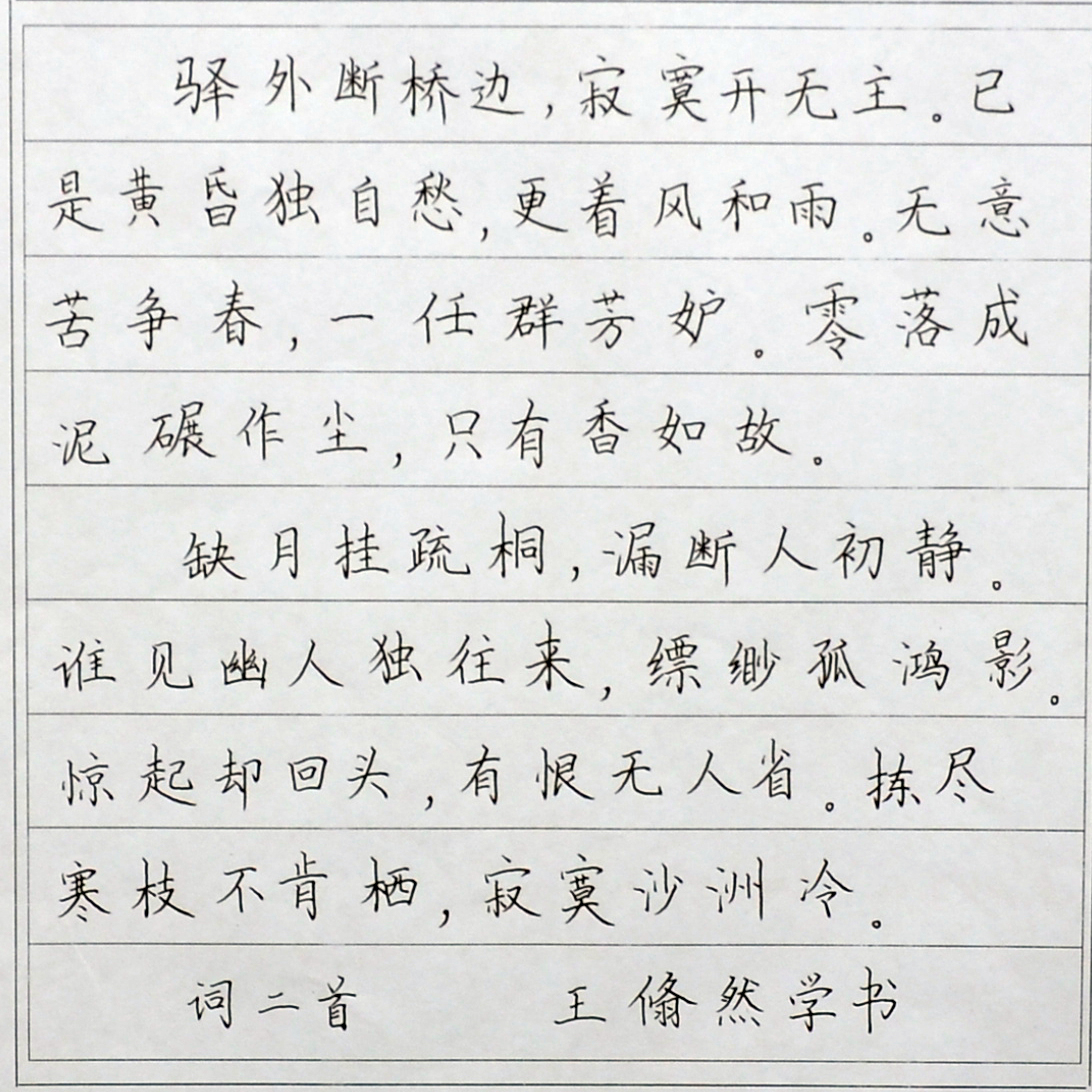 驿外断桥边,寂寞开无主。已
是黄昏独自愁,更着风和雨。无意
苦争春,一任群芳妒。零落成
泥碾作尘,只有香如故。
缺月挂疏桐,漏断人初静。
谁见幽人独往来,缥缈孤鸿影。
惊起却回头,有恨无人省。拣尽
寒枝不肯栖,寂寞沙洲冷。
词二首 王翛然学书